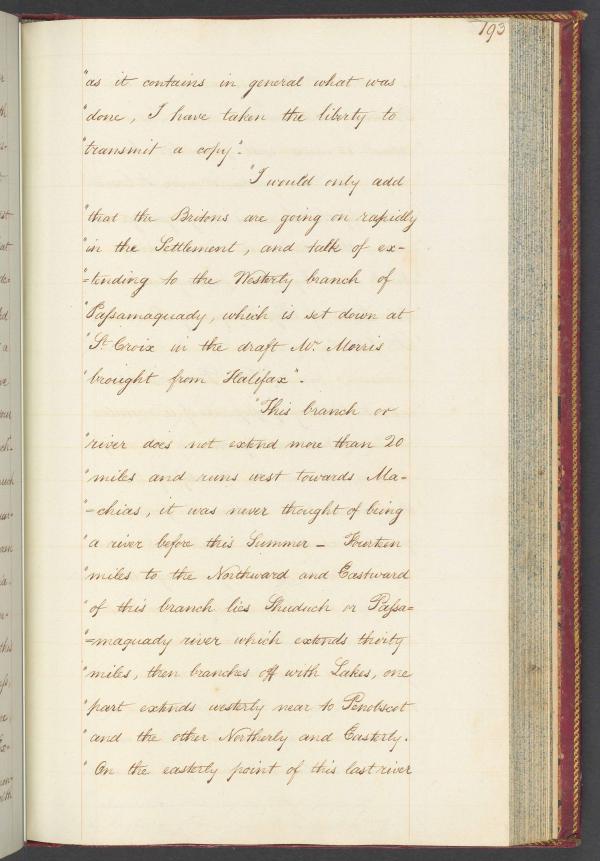 193
"as it contains in general what was
"done, I have taken the liberty to
"transmit a copy".
"I would only add
"that the Britons are going on rapidly
"in the Settlement, and talk of ex-
"=tending to the Westerly branch of
"Paſsamaquady, which is set down at
"St Croix in the draft Mr. Morris
"brought from Halifax".
"This branch or
"river does not extend more than 20
"miles and runs west towards Ma-
"=chias, it was never thought of being
"a river before this Summer - Fourteen
"miles to the Northward and Eastward
"of this branch lies Shuduch or Paſsa=
"=maquady river which extends thirty
"miles, then branches off with Lakes, one
"part extends westerly near to Penobscot
"and the other Northerly and Easterly.
"On the easterly point of this last river